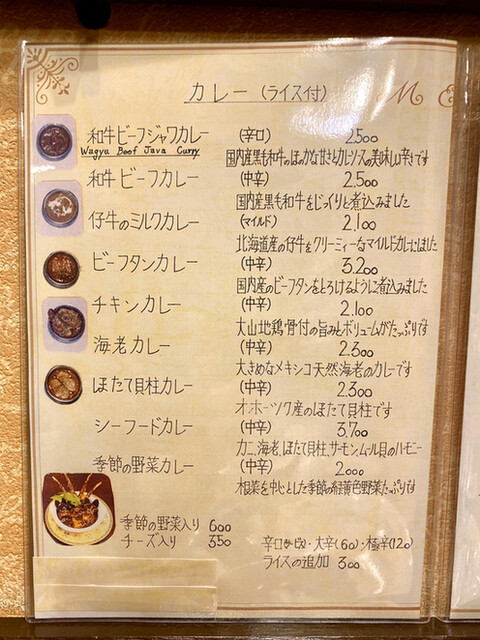 カレー (ライス付)
M
和牛ビーフジャワカレー (辛口) 2.500
Wagyu Beef Java Curry
国内産黒毛和牛のほのかな甘さとカレーソースの美味しい辛さです
和牛ビーフカレー (中辛) 2.500
国内産黒毛和牛をじっくりと煮込みました
仔牛のミルクカレー (マイルド) 2.100
北海道産の仔牛をクリーミィーなマイルドカレーにしました
ビーフタンカレー (中辛) 3.200
国内産のビーフタンをとろけるように煮込みました
チキンカレー (中辛) 2.100
大山地鶏骨付の旨みとボリュームがたっぷりです
海老カレー (中辛) 2.300
大きめなメキシコ天然海老のカレーです
ほたて貝柱カレー (中辛) 2.300
オホーツク産のほたて貝柱です
シーフードカレー (中辛) 3.700
カニ、海老、ほたて貝柱、サーモン、ムール貝のハーモニー
季節の野菜カレー (中辛) 2.000
根菜を中心とした季節の緑黄色野菜たっぷりです
季節の野菜入り 600
チーズ入り 350
辛口(サービス)・大辛(60)・極辛(120)
ライスの追加 300